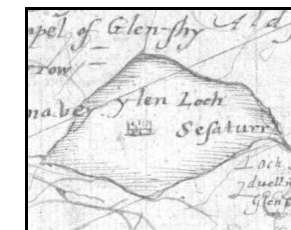 apel of Glen-shy Ald
rrow
naver ylen Loch
Sesaturr
Loch
duelli
Glens